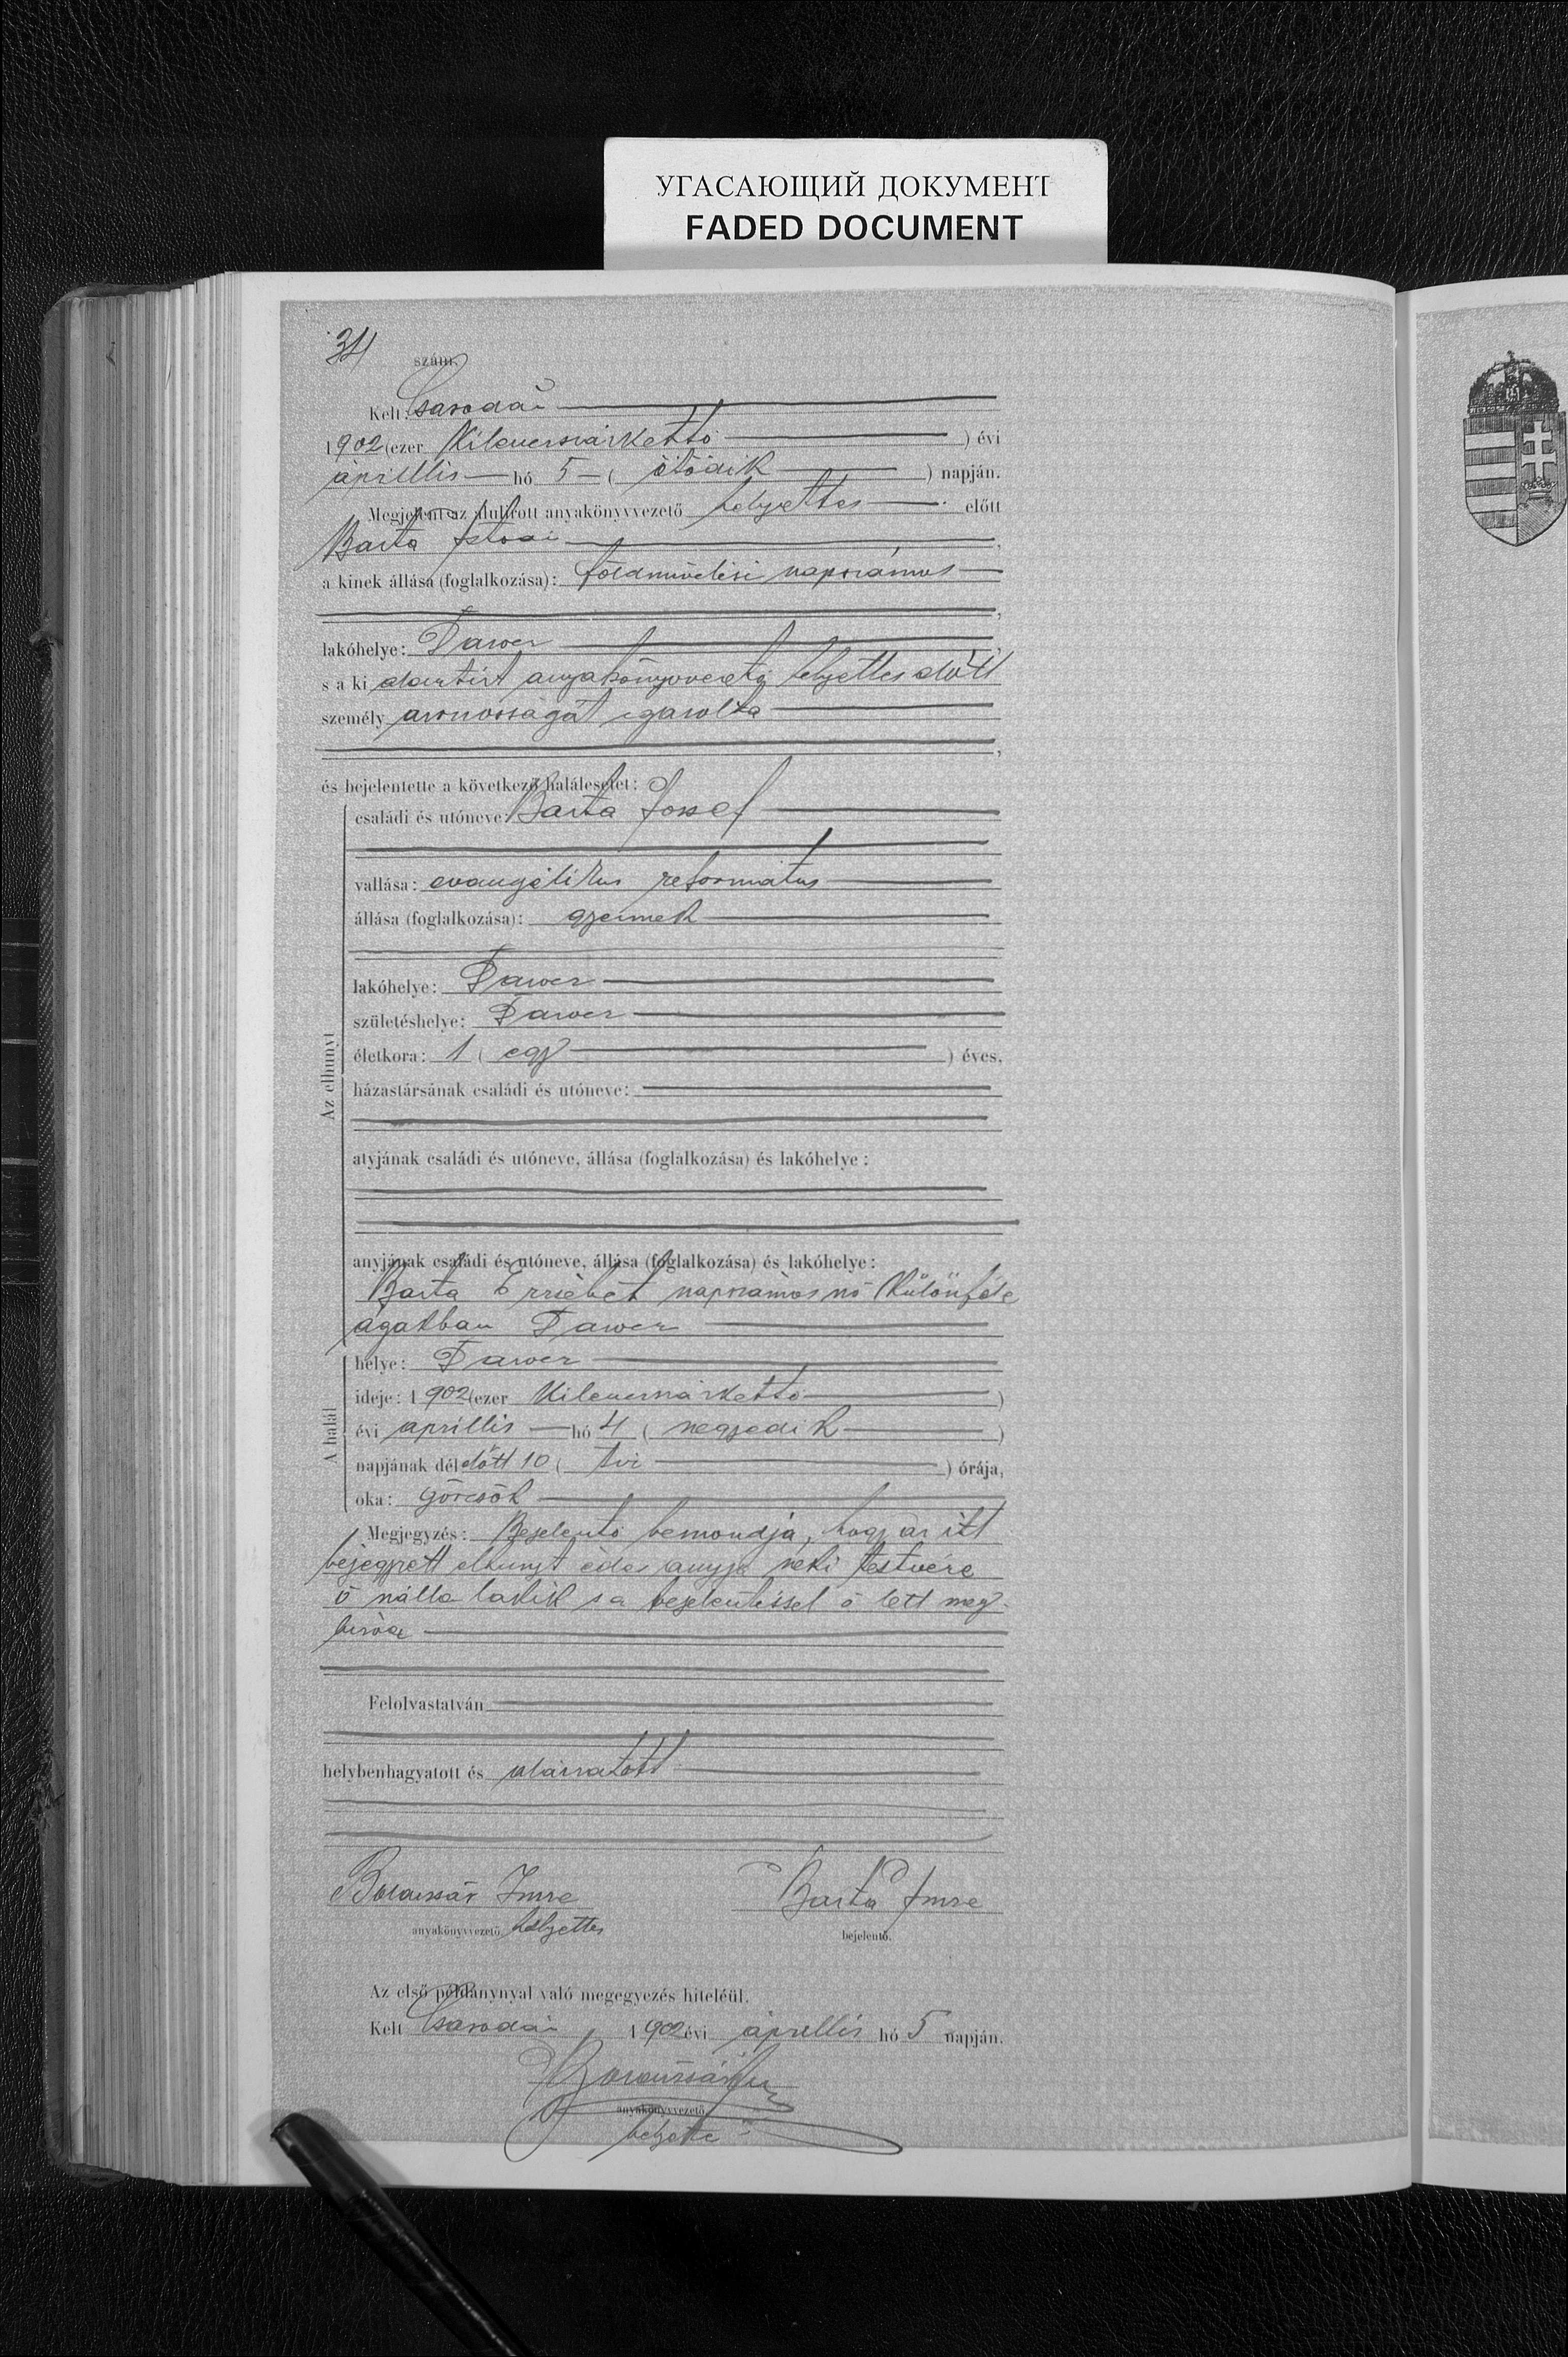 УГАСАЮЩИЙ ДОКУМЕНТ
FADED DOCUMENT
34 szám.
Kelt: Csarodán
1902 (ezer Kilenczszázkettő ) évi
áprillis hó 5 ( ötödik ) napján.
Megjelent az alulirott anyakönyvvezető helyettes előtt
Barta
a kinek állása (foglalkozása): földmüvelési napszámos
lakóhelye:
s a ki alantirt anyakönyvvezető helyettes előtt
személy azonosságát igazolta
és bejelentette a következő halálesetet:
családi és utóneve: Barta József
vallása: evangélikus református
állása (foglalkozása): gyermek
lakóhelye:
születéshelye:
életkora: 1 ( egy ) éves.
Az elhunyt
házastársának családi és utóneve:
atyjának családi és utóneve, állása (foglalkozása) és lakóhelye:
anyjának családi és utóneve, állása (foglalkozása) és lakóhelye:
Barta Erzsébet napszámos nő Különféle
ágakban
A halál
helye:
ideje: 1902 (ezer Kilenczszázkettő )
évi áprillis hó 4 ( negyedik )
napjának délelőtt 10 ( tiz ) órája,
oka: görcsök
Megjegyzés: Bejelentő bemondja, hogy az itt
bejegyzett elhunyt édes anyja neki testvére
ő nálla lakik s a bejelentéssel ő lett meg-
bizva
Felolvastatván
helybenhagyatott és aláiratott
Imre
anyakönyvvezető helyettes
Barta Imre
bejelentő.
Az első példánynyal való megegyezés hiteléül.
Kelt Csarodán, 1902 évi áprillis hó 5 napján.
anyakönyvvezető
helyettes